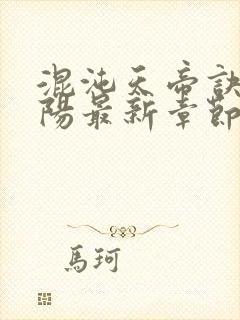 混沌天帝訣
陽最新章節
馬珂